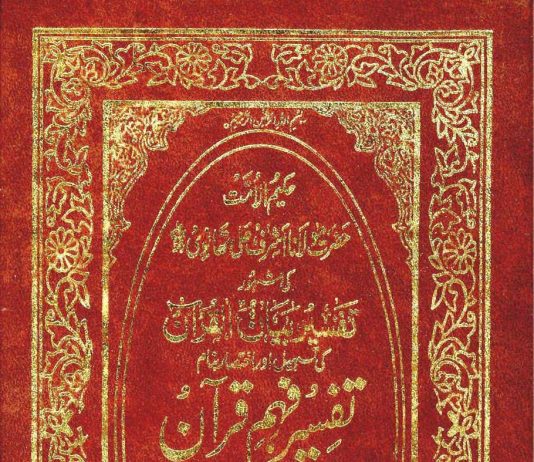 بسم اللہ الرحمٰن الرحیم
حکیم الاُمّت
حضرت مولانا اشرف علی تھانوی
کی مشہور
تفسیر بیان القرآن
کی تسہیل اور اختصار بنام
تفسیر فہمِ قرآن